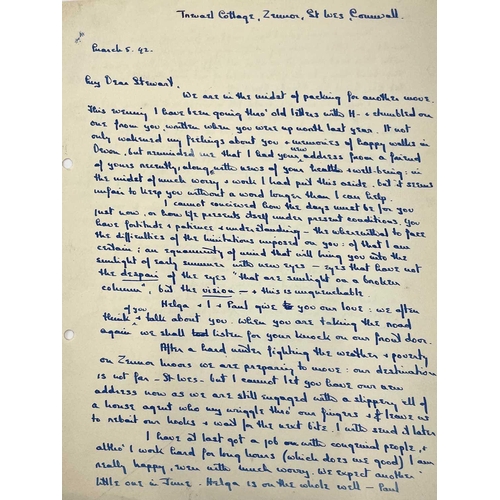 Trewarl Cottage, Zennor, St Ives, Cornwall.
March 5. 42.
My Dear Stewart.
We are in the midst of packing for another move.
This evening I have been going thro' old letters with H - + chumbled on
one from you, written when you were up north last year. It not
only wakened my feelings about you + memories of happy walks in
Devon, but reminded me that I had your new address from a friend
of yours recently, along with news of your health + well-being: in
the midst of much worry + work I had put this aside. but it seems
unfair to keep you without a word longer than I can help.
I cannot conceive how the days must be for you
just now, or how life presents itself under present conditions. You
have fortitude + patience + understanding - the wherewithal to face
the difficulties of the limitations imposed on you: of that I am
certain: an equanimity of mind that will bring you into the
sunlight of early summer with new eyes - eyes that have not
the despair of the eyes "that are sunlight on a broken
column", but the vision - + this is unquenchable.
Helga + I + Paul give you our love: we often
think + talk about you. When you are taking the road
again we shall listen for your knock on our front door.
After a hard winter fighting the weather + poverty
on Zennor moors we are preparing to move: our destination
is not far - St Ives - but I cannot let you have our new
address now as we are still engaged with a slippery eel of
a house agent who may wriggle thro' our fingers + leave us
to rebait our hooks + wait for the next bite. I will send it later
I have at last got a job on with congenial people, +
altho' I work hard for long hours (which does me good) I am
really happy, even with much worry. We expect another
little one in June. Helga is on the whole well - Paul